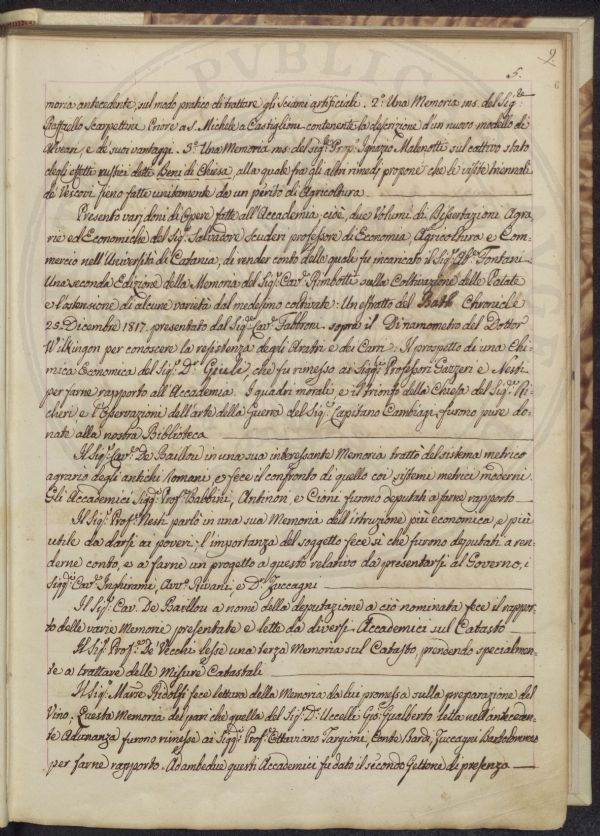 9
5.
6
moria antecedente, sul modo pratico di trattare gli Sciami artificiali. 2.º Una Memoria ms. del Sig.re
Raffaello Scarpettini Priore a S. Michele a Castiglioni contenente la descrizione d'un nuovo modello di
Alveari e de' suoi vantaggi. 3.º Una Memoria ms. del Sig.r Ignazio Malenotti sul cattivo stato
degli effetti rustici detti Beni di Chiesa, alla quale fra gli altri rimedj propone che le visite triennali
de' Vescovi sieno fatte unitamente da un perito di Agricoltura
Presentò varj doni di Opere fatte all'Accademia, cioè, due Volumi di Dissertazioni Agra-
rie ed Economiche del Sig.r Salvadore Scuderi professore di Economia, Agricoltura e Com-
mercio nell'Università di Catania, di render conto delle quali fu incaricato il Sig.r Ab.e Fontani
Una seconda Edizione della Memoria del Sig.r Cav.r Rimbotti sulla Coltivazione delle Patate
e l'ostensione di alcune varietà dal medesimo coltivate: Un estratto del Bath Chronicle
25. Dicembre 1817. presentato dal Sig.r Cav.r Fabbroni sopra il Dinamometro del Dottor
Wilkingon per conoscere la resistenza degli Aratri e dei Carri. Il prospetto di una Chi-
mica Economica del Sig.r D.r Giuli che fu rimesso ai Sigg.ri Professori Gazzeri e Nesti
per farne rapporto all'Accademia. I quadri morali e il trionfo della Chiesa del Sig.r Ri-
chieri e l'Osservazioni dell'arte della Guerra del Sig.r Capitano Cambiagi, furono pure do-
nate alla nostra Biblioteca
Il Sig.r Cav.r De Baillou in una sua interessante Memoria trattò del sistema metrico
agrario degli antichi Romani, e fece il confronto di quello coi sistemi metrici moderni.
Gli Accademici Sigg.ri Prof.ri Babbini, Antinori e Cioni furono deputati a farne rapporto
Il Sig.r Prof.r Nesti parlò in una sua Memoria dell'istruzione più economica e più
utile da darsi ai poveri: l'importanza del soggetto fece sì che furono deputati a ren-
derne conto, e a farne un progetto a questo relativo da presentarsi al Governo, i
Sigg.ri Cav.r Inghirami, Avv.to Rivani, e D.r Zuccagni
Il Sig.r Cav. De Baillou a nome della deputazione a ciò nominata fece il rappor-
to delle varie Memorie presentate e lette da diversi Accademici sul Catasto
Il Sig.r Prof.r De' Vecchi lesse una terza Memoria sul Catasto, prendendo specialmen-
te a trattare delle Misure Catastali
Il Sig.r March.e Ridolfi fece lettura della Memoria da lui promessa sulla preparazione del
Vino. Questa Memoria del pari che quella del Sig.r D.r Uccelli Gio. Gualberto letta nell'anteceden-
te Adunanza furono rimesse ai Sigg.ri Prof.ri Ottaviano Targioni, Conte Bardi, Zuccagni Bartolommeo
per farne rapporto. Ad ambedue questi Accademici fu dato il secondo Gettone di presenza